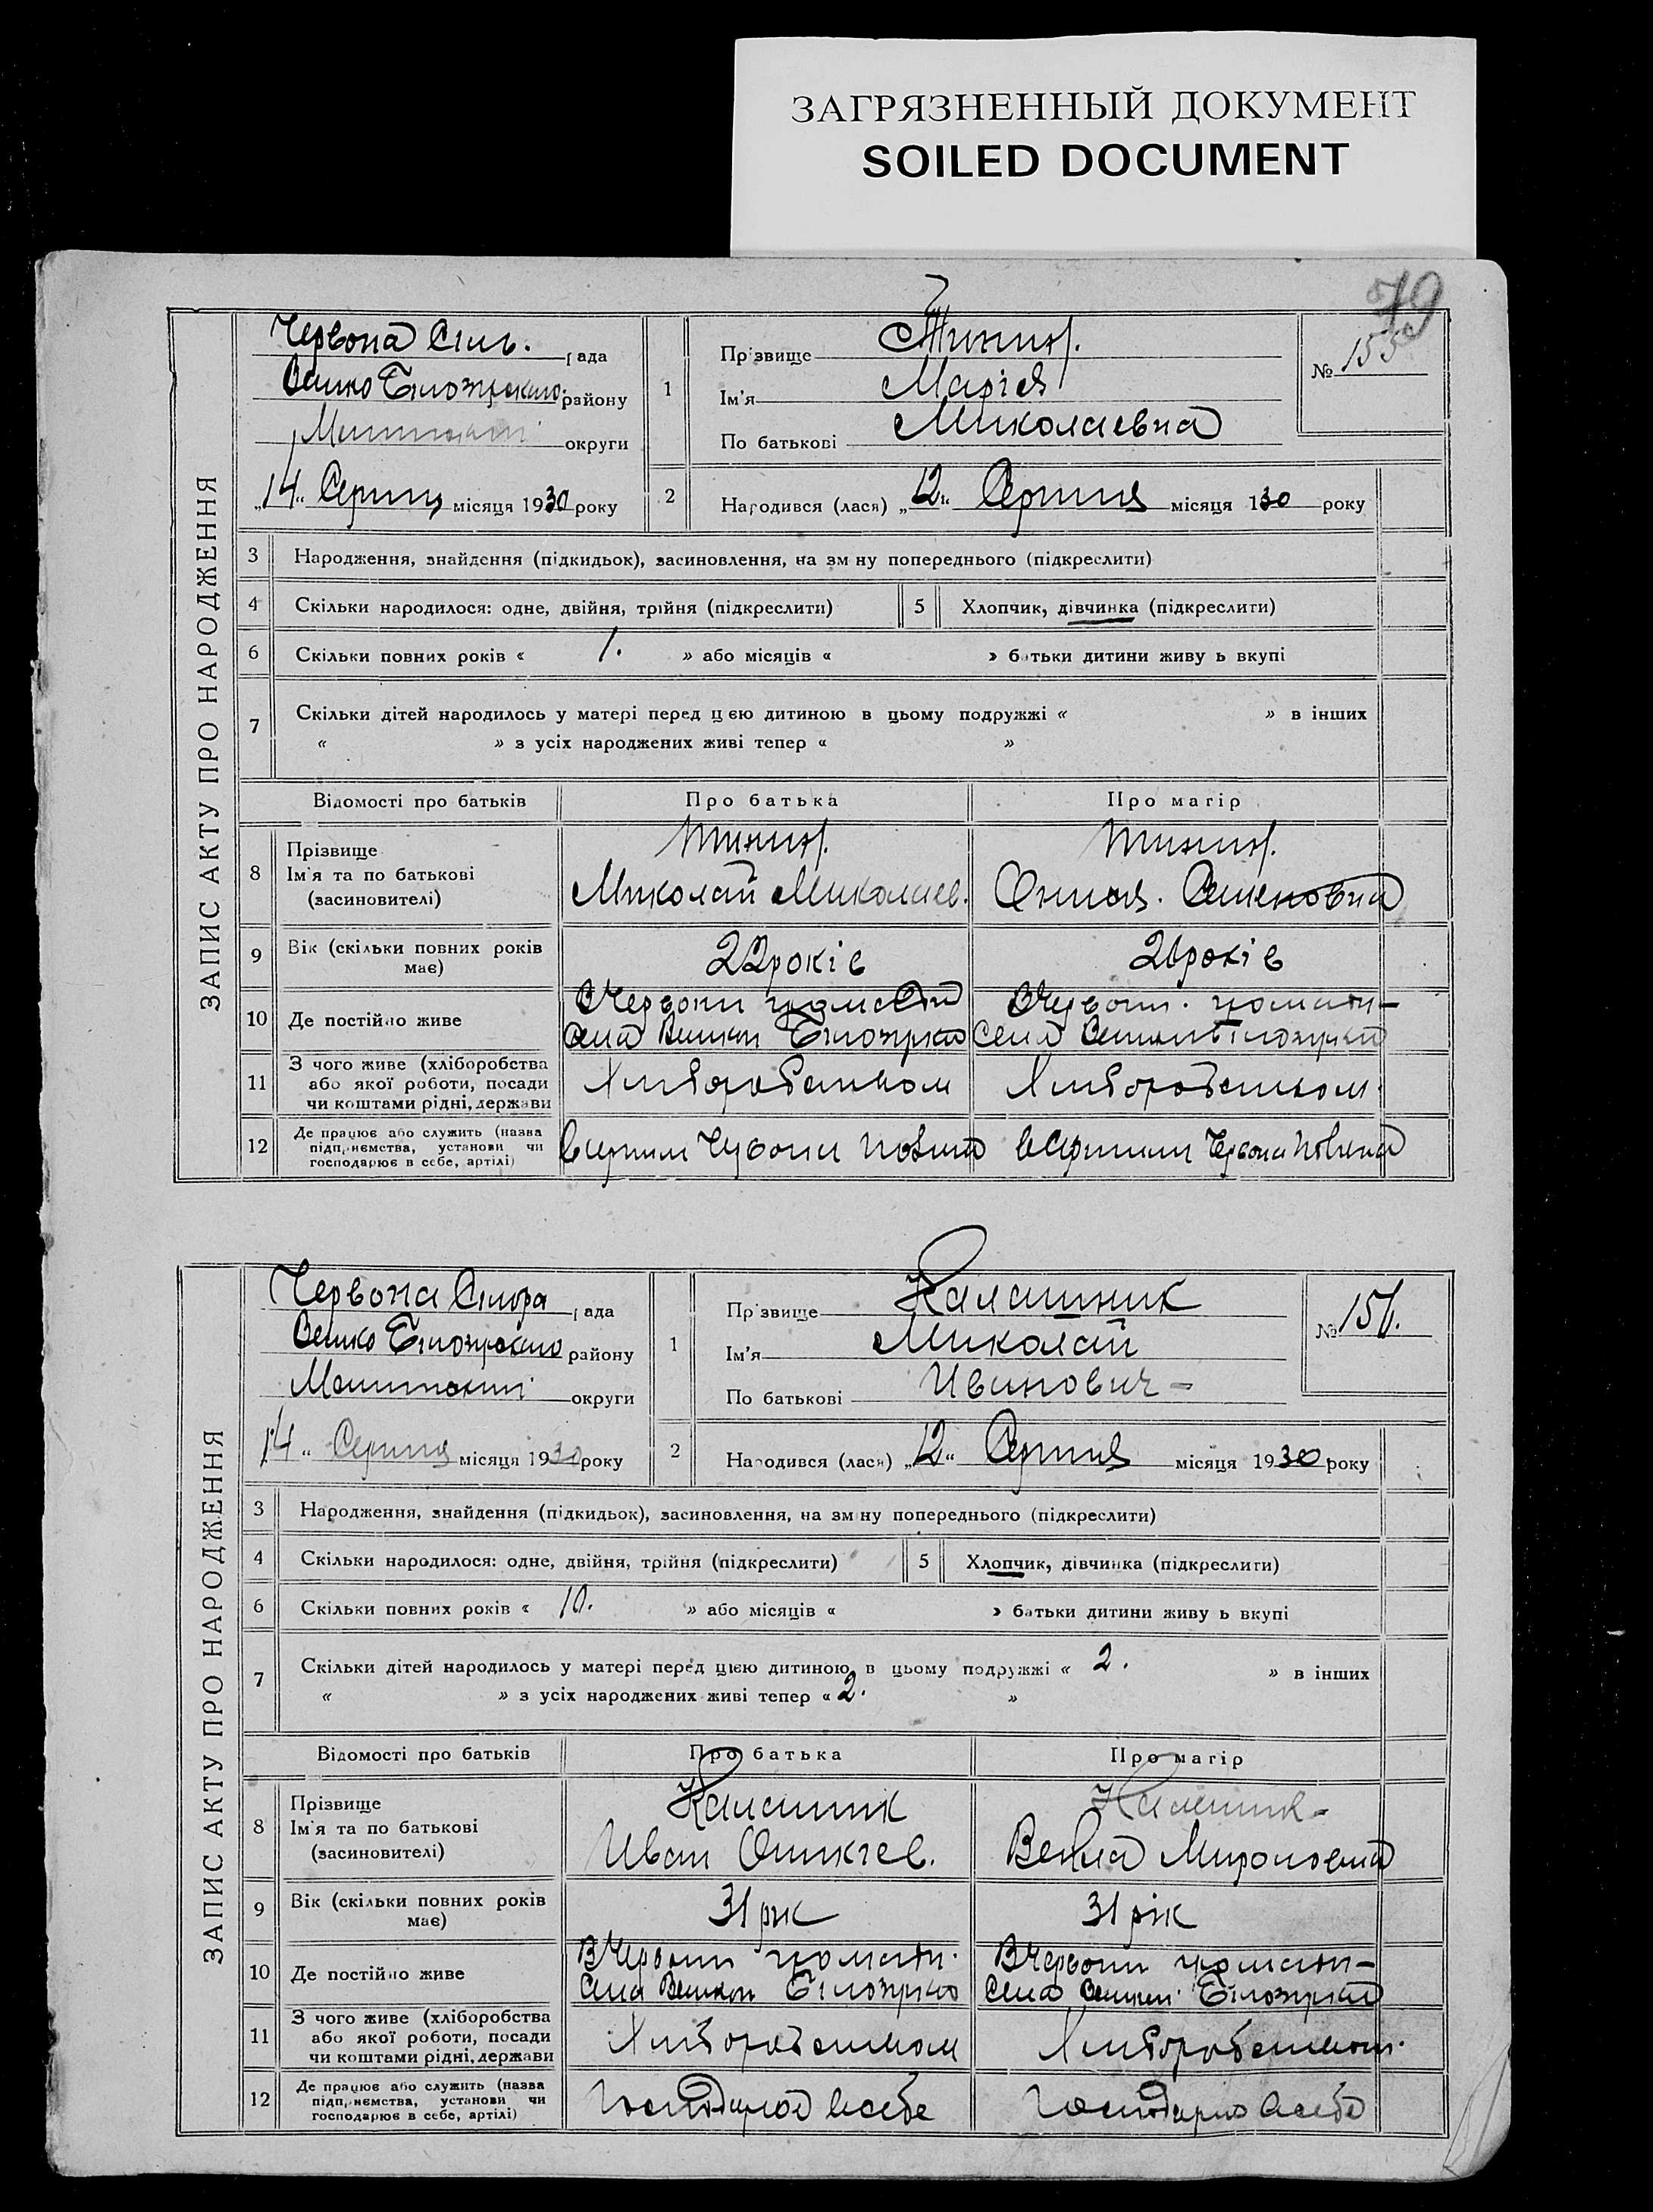 ЗАГРЯЗНЕННЫЙ ДОКУМЕНТ
SOILED DOCUMENT
79
ЗАПИС АКТУ ПРО НАРОДЖЕННЯ
Червона Сіль. рада
району
округи
„14“ Серпня місяця 1930 року
1
Прізвище
Ім'я Марія
По батькові Миколаевна
№ 155
2 Народився (лася) „12“ Серпня місяця 130 року
3 Народження, знайдення (підкидьок), засиновлення, на зміну попереднього (підкреслити)
4 Скільки народилося: одне, двійня, трійня (підкреслити) 5 Хлопчик, дівчинка (підкреслити)
6 Скільки повних років « 1. » або місяців « » батьки дитини живуть вкупі
7 Скільки дітей народилось у матері перед цією дитиною в цьому подружжі « » в інших
« » з усіх народжених живі тепер « »
Відомості про батьків Про батька Про матір
8 Прізвище
Ім'я та по батькові
(засиновителі)
Миколай Миколаев.
Семеновна
9 Вік (скільки повних років має) 22 років 21 років
10 Де постійно живе
Червони громади
Села Велики Білозірка
11 З чого живе (хліборобства
або якої роботи, посади
чи коштами рідні, держави
Хлиборобством Хлиборобством.
12 Де працює або служить (назва
підприємства, установи чи
господарює в себе, артілі)
ЗАПИС АКТУ ПРО НАРОДЖЕННЯ
Червона Сільра рада
району
округи
14“ Серпня місяця 1930 року
1
Прізвище Калашник
Ім'я Миколай
По батькові Иванович
№ 156.
2 Народився (лася) „12“ Серпня місяця 1930 року
3 Народження, знайдення (підкидьок), засиновлення, на зміну попереднього (підкреслити)
4 Скільки народилося: одне, двійня, трійня (підкреслити) 5 Хлопчик, дівчинка (підкреслити)
6 Скільки повних років « 10. » або місяців « » батьки дитини живуть вкупі
7 Скільки дітей народилось у матері перед цією дитиною в цьому подружжі « 2. » в інших
« » з усіх народжених живі тепер « 2. »
Відомості про батьків Про батька Про матір
8 Прізвище
Ім'я та по батькові
(засиновителі)
Калашник Калашник
Иван Мироновна
9 Вік (скільки повних років має) 31 рік 31 рік
10 Де постійно живе
В Червони громади. В Червони громади
Села Велики Білозірка Села Велики Білозірка
11 З чого живе (хліборобства
або якої роботи, посади
чи коштами рідні, держави
Хлиборобством Хлиборобством.
12 Де працює або служить (назва
підприємства, установи чи
господарює в себе, артілі)
Господарює в себе Господарює в себе